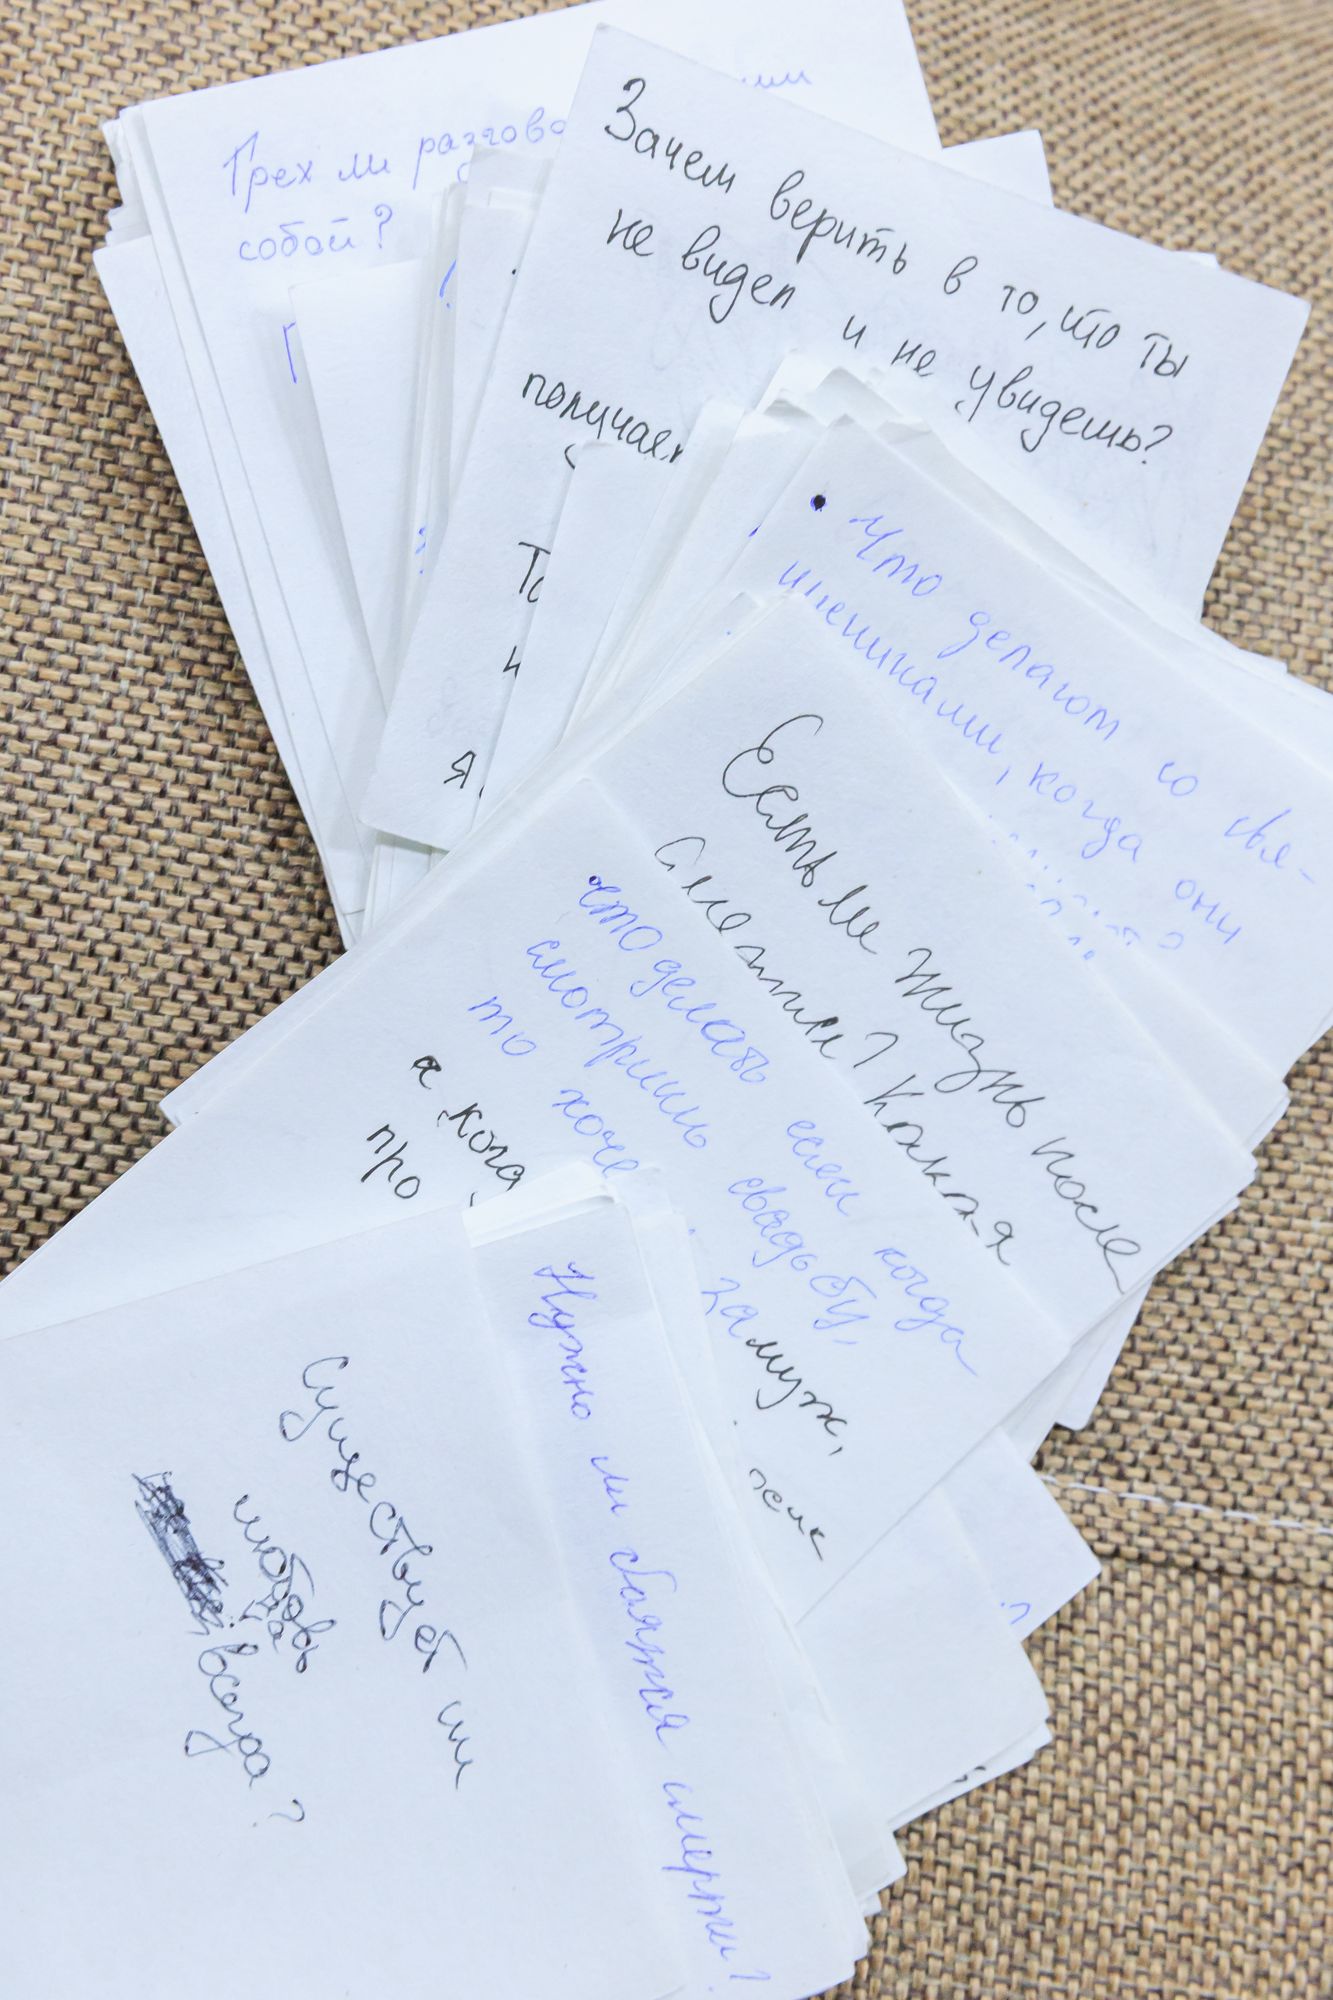 Грех ли разгово
собой?
Зачем верить в то, что ты
не видел и не увидешь?
получает
То
я
Что делают со свя-
щенниками, когда они
Есть ли жизнь после
смерти? Какая
что делать если когда
смотришь свадьбу,
то хоче замуж,
а когд
про
Нужно ли бояться смерти?
Существует ли
любовь
на
всегда?